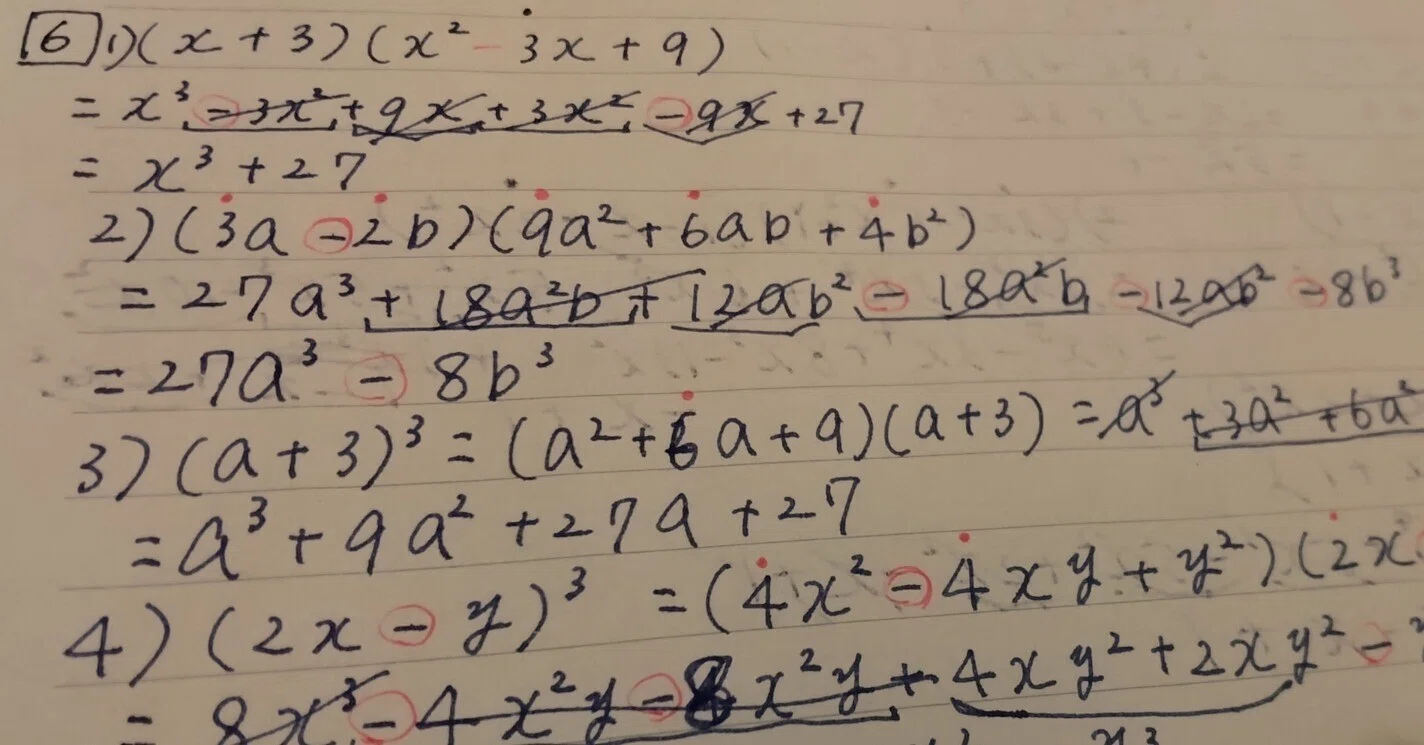 6 1) (x + 3)(x² - 3x + 9)
= x³ - 3x² + 9x + 3x² - 9x + 27
= x³ + 27
2) (3a - 2b)(9a² + 6ab + 4b²)
= 27a³ + 18a²b + 12ab² - 18a²b - 12ab² - 8b³
= 27a³ - 8b³
3) (a + 3)³ = (a² + 6a + 9)(a + 3) = a³ + 3a² + 6a²
= a³ + 9a² + 27a + 27
4) (2x - y)³ = (4x² - 4xy + y²)(2x
= 8x³ - 4x²y - 8x²y + 4xy² + 2xy² -